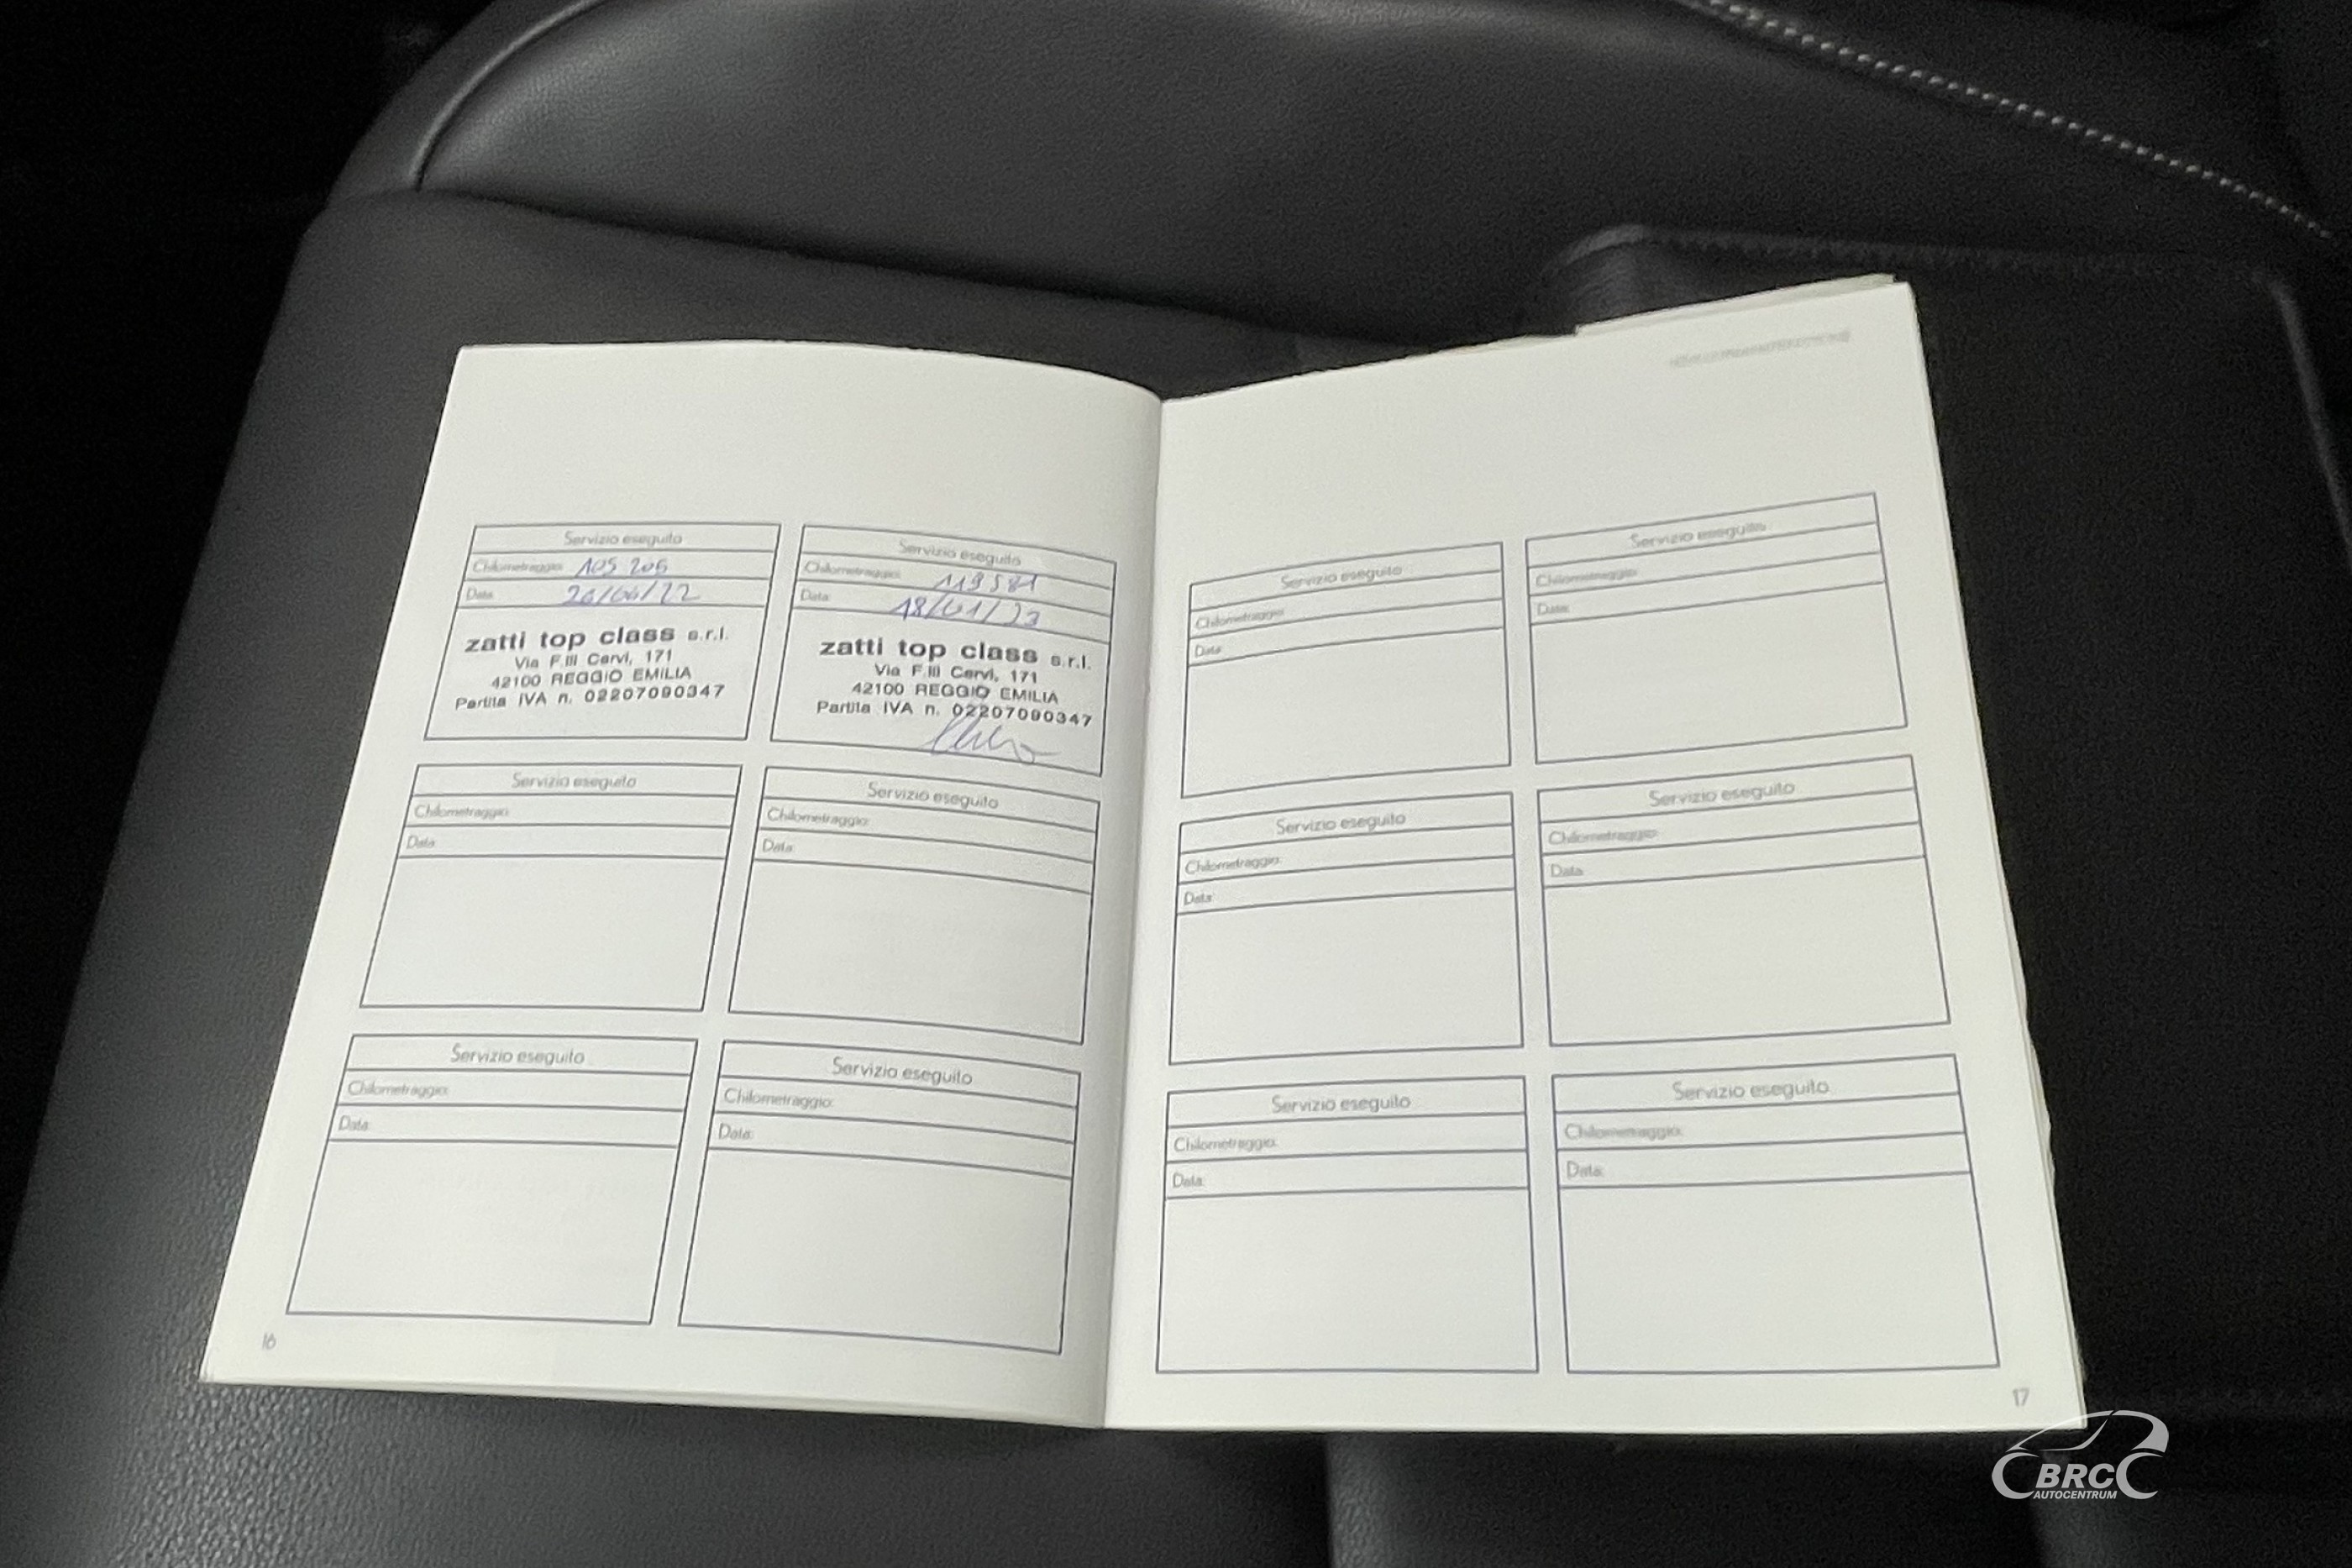 Servizio eseguito
Chilometraggio: 105 205
Data:
zatti top class s.r.l.
Via F.lli Cervi, 171
42100 REGGIO EMILIA
Partita IVA n. 02207090347
Servizio eseguito
Chilometraggio: 119581
Data: 18/01/23
zatti top class s.r.l.
Via F.lli Cervi, 171
42100 REGGIO EMILIA
Partita IVA n. 02207090347
Servizio eseguito
Chilometraggio:
Data:
Servizio eseguito
Chilometraggio:
Data:
Servizio eseguito
Chilometraggio:
Data:
Servizio eseguito
Chilometraggio:
Data:
16
Servizio eseguito
Chilometraggio:
Data:
Servizio eseguito
Chilometraggio:
Data:
Servizio eseguito
Chilometraggio:
Data:
Servizio eseguito
Chilometraggio:
Data:
Servizio eseguito
Chilometraggio:
Data:
Servizio eseguito
Chilometraggio:
Data:
17
BRC
AUTOCENTRUM